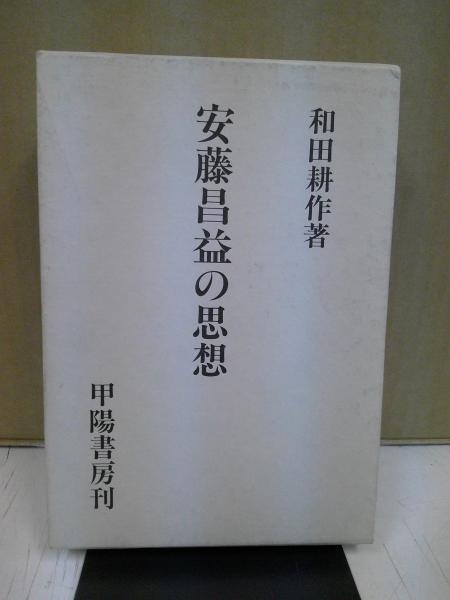 和田耕作著
安藤昌益の思想
甲陽書房刊